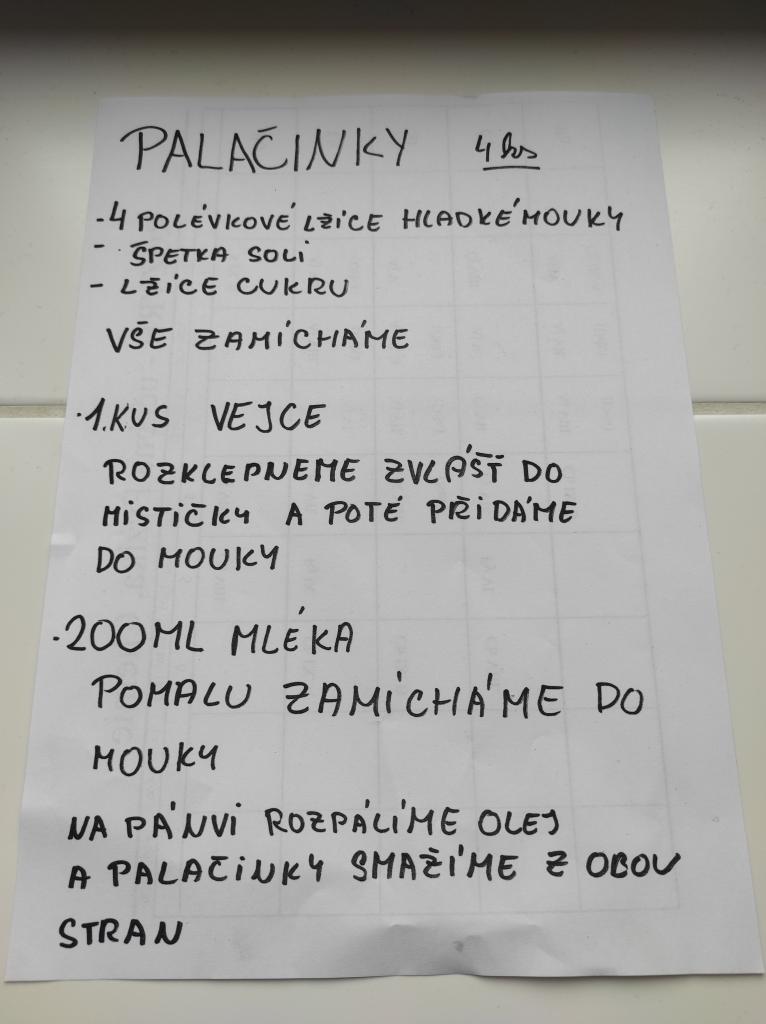 PALAČINKY 4 ks
- 4 POLÉVKOVÉ LŽÍCE HLADKÉ MOUKY
- ŠPETKA SOLI
- LŽÍCE CUKRU
VŠE ZAMÍCHÁME
· 1. KUS VEJCE
ROZKLEPNEME ZVLÁŠŤ DO
MISTIČKY A POTÉ PŘIDÁME
DO MOUKY
· 200ML MLÉKA
POMALU ZAMÍCHÁME DO
MOUKY
NA PÁNVI ROZPÁLÍME OLEJ
A PALAČINKY SMAŽÍME Z OBOU
STRAN